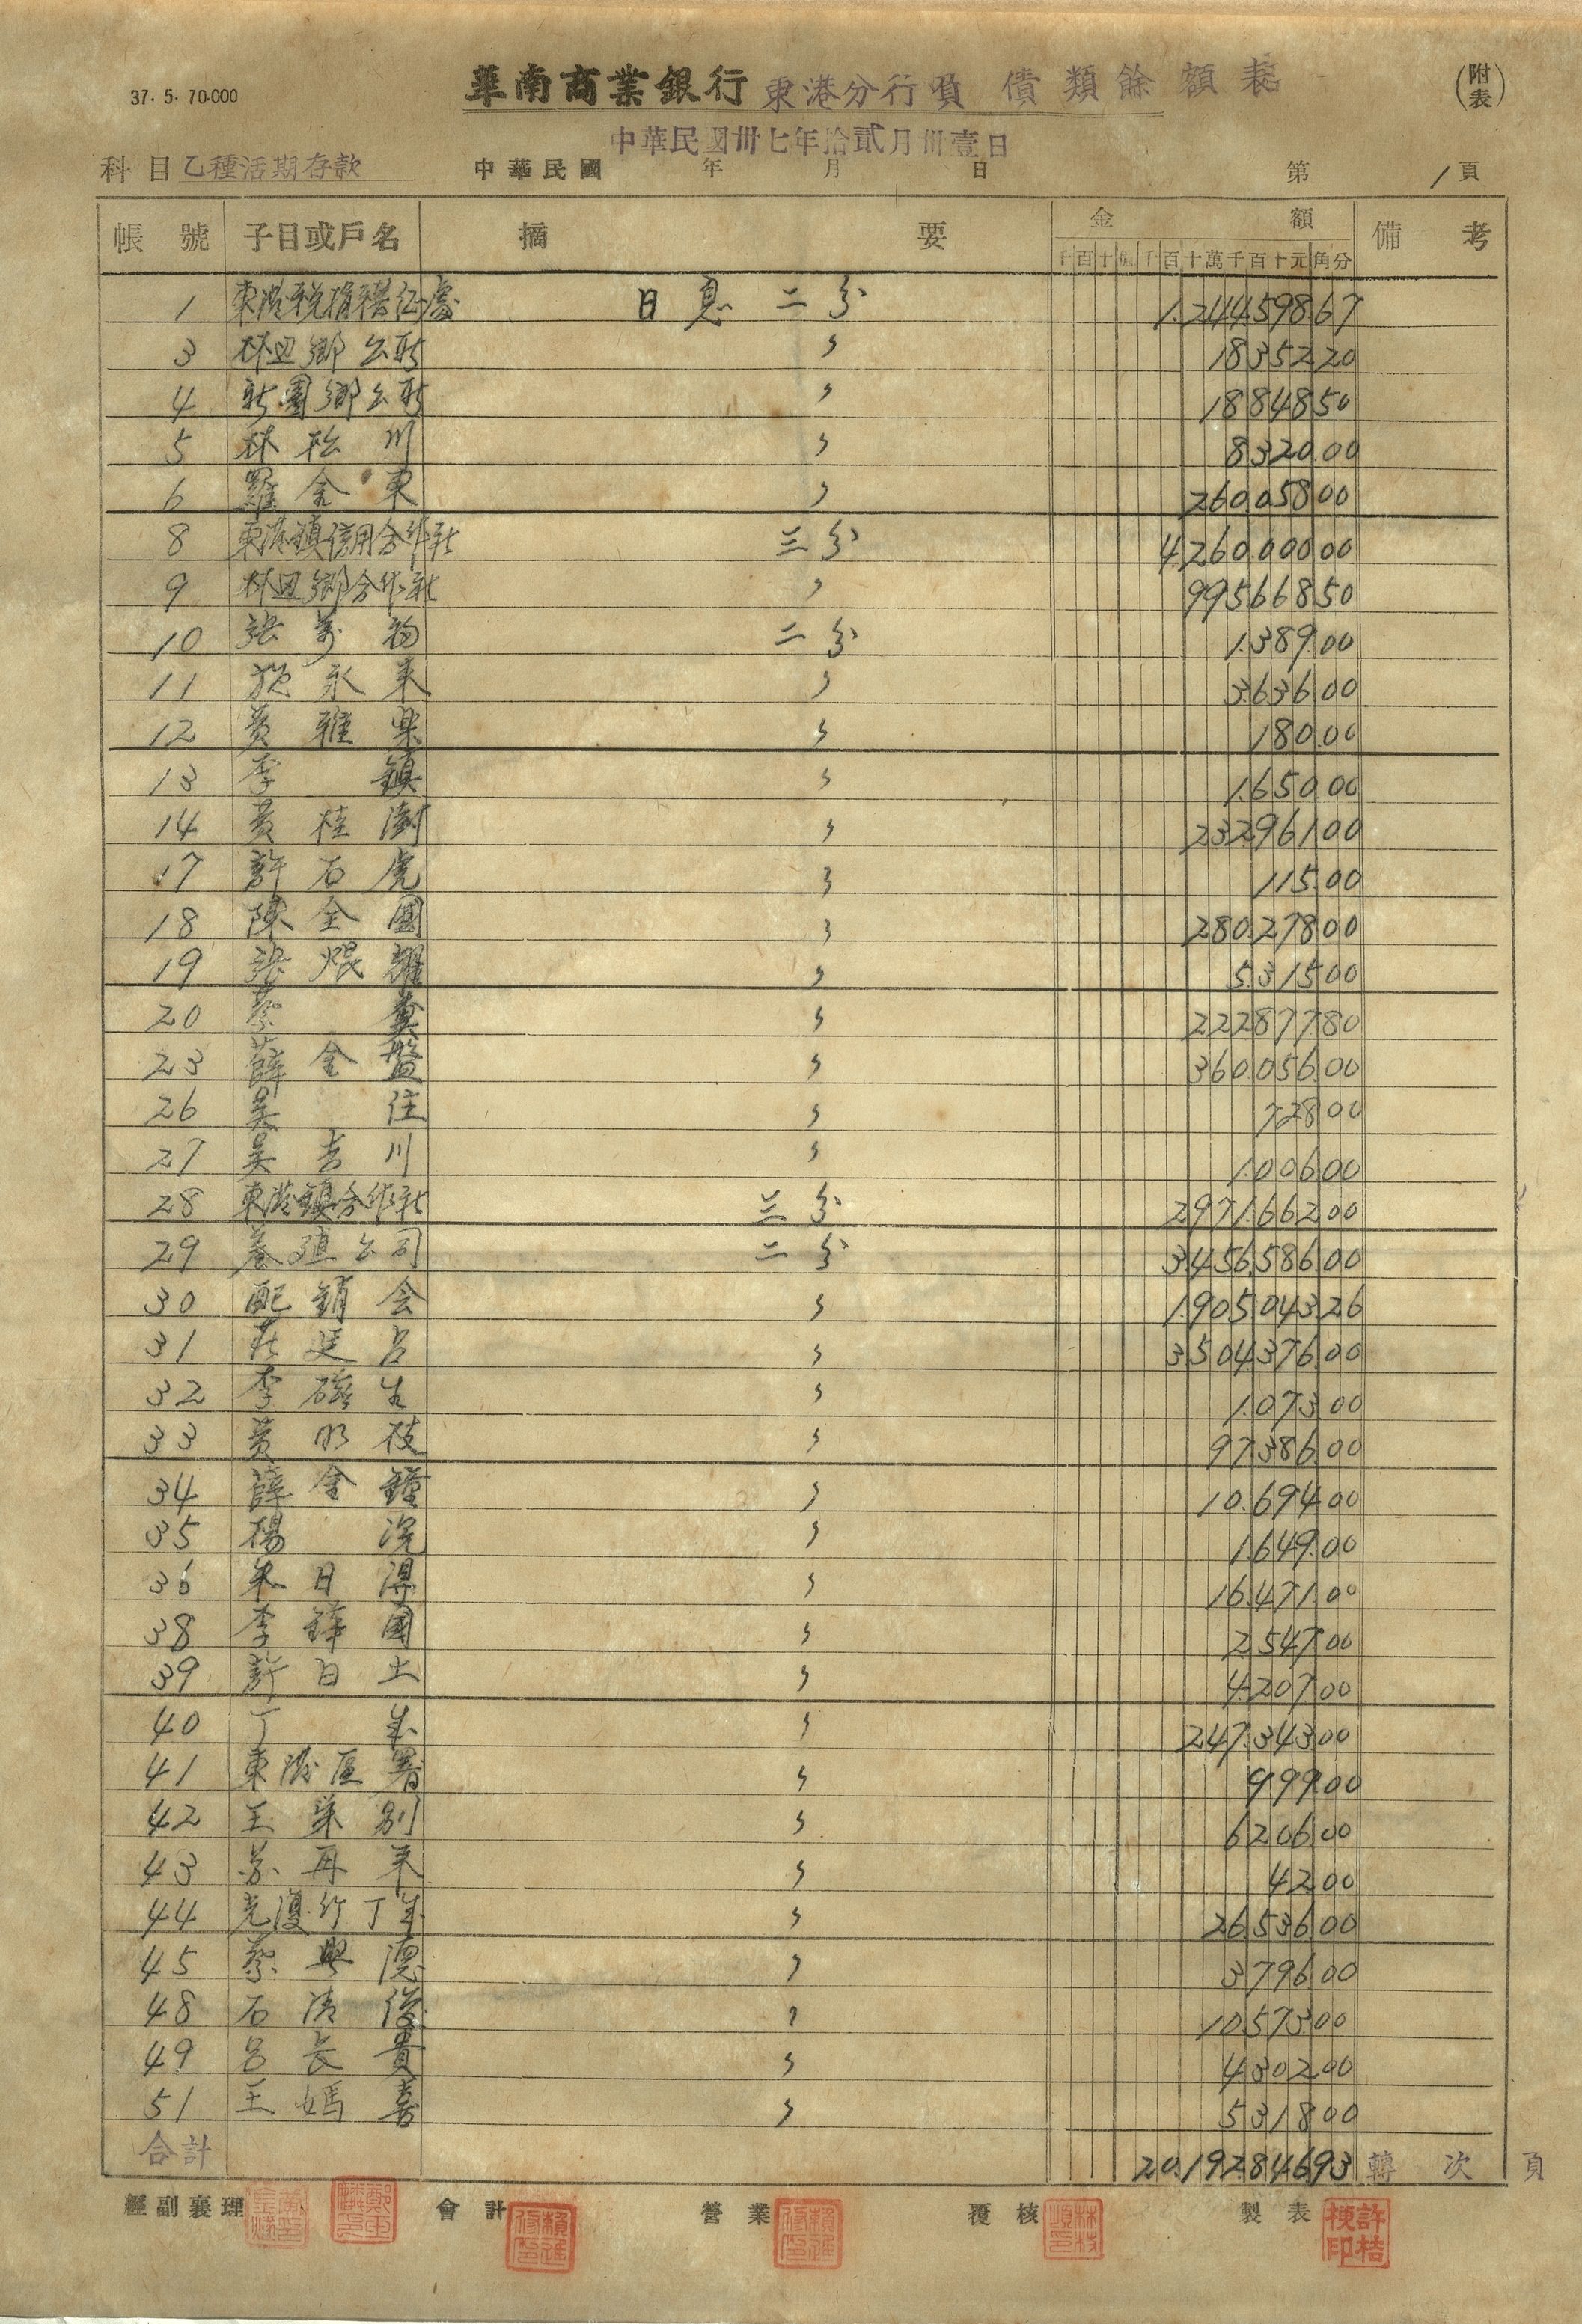 37. 5. 70.000
華南商業銀行 東港分行 負債類餘額表
(附表)
中華民國卅七年拾貳月卅壹日
科目 乙種活期存款 中華民國 年 月 日 第 1 頁
帳號 子目或戶名 摘要 金額 備考
千百十億千百十萬千百十元角分
1 東港稅捐稽征處 日息二分 1.244.598.67
3 林边鄉公所 〃 18.352.20
4 新園鄉公所 〃 18.848.50
5 林松川 〃 8.320.00
6 羅金東 〃 260.058.00
8 東港鎮信用合作社 三分 4.260.000.00
9 林边鄉合作社 〃 995.668.50
10 張萬 二分 1.389.00
11 施永来 〃 3.636.00
12 黃雅楽 〃 180.00
13 李鎮 〃 1.650.00
14 黃桂澍 〃 232.961.00
17 許石虎 〃 115.00
18 陳金團 〃 280.278.00
19 張焜耀 〃 5.315.00
20 蔡糞 〃 222.877.80
23 薛金盤 〃 360.056.00
26 吳住 〃 728.00
27 吳吉川 〃 1.006.00
28 東港鎮合作社 三分 2.971.662.00
29 養殖公司 二分 3.456.586.00
30 配銷会 〃 1.905.043.26
31 莊廷 〃 3.504.376.00
32 李生 〃 1.073.00
33 黃明枝 〃 97.386.00
34 薛金鐘 〃 10.694.00
35 楊 〃 1.649.00
36 朱日得 〃 16.471.00
38 李鋒國 〃 2.547.00
39 許白土 〃 4.207.00
40 丁 〃 247.343.00
41 東港區署 〃 999.00
42 王 別 〃 6.206.00
43 蘇再来 〃 42.00
44 光復行丁 〃 26.536.00
45 蔡興德 〃 3.796.00
48 石清俊 〃 10.573.00
49 呂長貴 〃 4.302.00
51 王媽喜 〃 5.318.00
合計 20.192.846.93 轉次頁
經副襄理 會計 營業 覆核 製表
許桔梗印